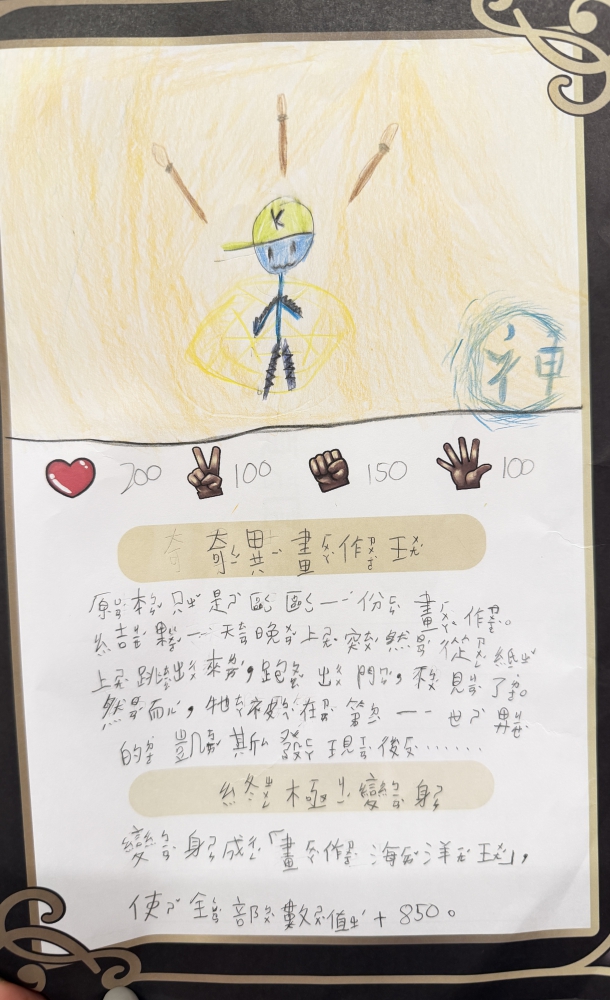 K
神
200 100 150 100
奇異畫作王
原本只是區區一份畫作。
結果一天晚上突然從紙
上跳出來，跑出門，不見了。
然而，牠被在第一世界
的凱斯發現後……
終極變身
變身成「畫作海洋王」，
使全部數值+850。